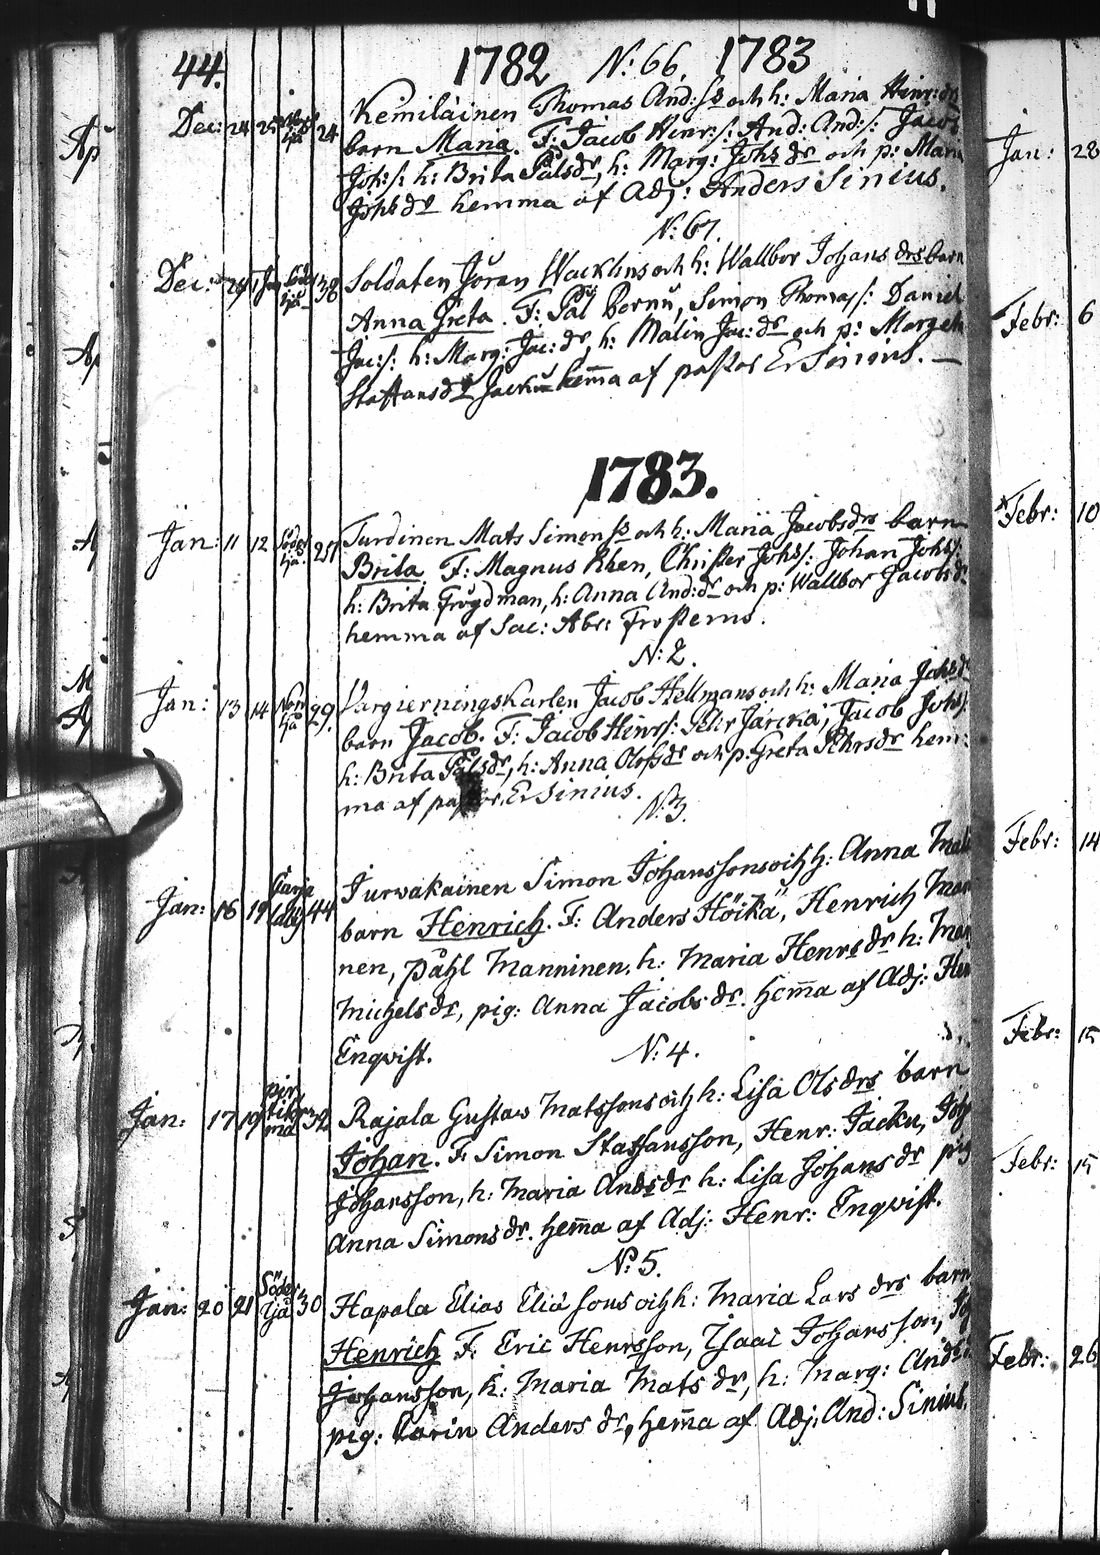 44. 1782 N:66. 1783
Dec: 24 25 24 Kemiläinen Thomas And:ss och h: Maria Hinr:dr
barn Maria. F: Jacob Hinr:s: And: And:s: Jacob
Joh:s: h: Brita Pålsdr, h: Marg: Johs dr och p: Maria
Johs dr hemma af Adj: Anders Sinius.
N:67.
Dec: 29 1 Jan Söder ljä 38 Soldaten Jöran Wacklins och h: Wallbor Johans drs barn
Anna Greta. F: Pål Pernu, Simon Thomas s: Daniel
Jac:s: h: Marg: Jac: dr, h: Malin Jac: dr och p: Margeta
Staffans dr Jacku hem̄a af pastor Er Sinius. —
1783.
Jan: 11 12 Söder ljä: 25 Turdinen Mats Simonss och h: Maria Jacobsdrs barn
Brita. F: Magnus Khen, Christer Johs s: Johan Johs s:
h: Brita Frogdman, h: Anna And: dr och p: Wallbor Jacobs dr
hemma af Sac: Abr: Frosterus.
N:2.
Jan: 13 14 Norr ljä 29. Vargierningskarlen Jacob Hellmans och h: Maria Johs dr
barn Jacob. F: Jacob Hinrs: Pehr Järickä, Jacob Johs s:
h: Brita Pålsdr, h: Anna Olofsdr och p: Greta Pehrsdr hem:
ma af pastor Er Sinius.
N:3.
Jan: 16 19 44 Jurwakainen Simon Johanssons och h: Anna
barn Henrich. F: Anders Höikä, Henrich
nen, påhl Manninen. h: Maria Henrs dr h:
Michels dr, pig: Anna Jacobs dr. hem̄a af Adj: Hen
Enqvist.
N:4.
Jan: 17 19 32 Rajala Gustaw Matssons och h: Lisa Ols drs barn
Johan. F: Simon Staffansson, Henr: Jacku, Joh
Johansson, h: Maria Ands dr h: Lisa Johans dr pig
Anna Simons dr. hem̄a af Adj: Henr: Enqvist.
N:5.
Jan: 20 21 Söder ljä 30 Hapala Elias Eliä sons och h: Maria Lars drs barn
Henrich F: Eric Henrsson, Isaac Johansson,
Johansson, h: Maria Mats dr, h: Marg: Anders
pig: Karin Anders dr, hem̄a af Adj: And: Sinius.
Jan: 28
Febr: 6
Febr: 10
Febr: 14
Febr: 15
Febr: 15
Febr: 26